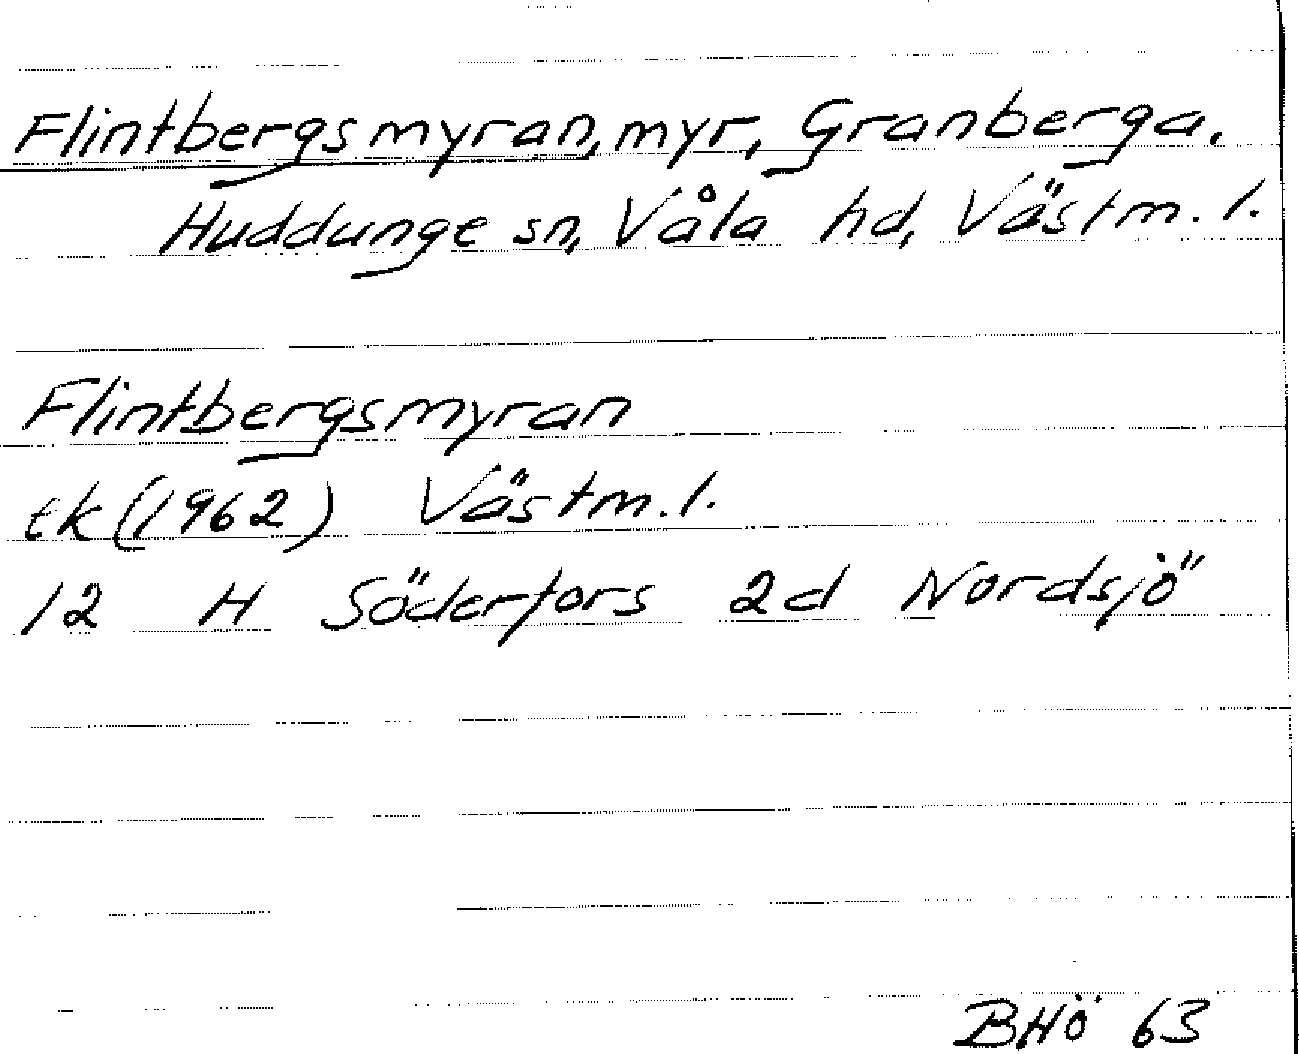 Flintbergsmyran, myr, Granberga,
Huddunge sn, Våla hd, Västm. l.
Flintbergsmyran
tk (1962) Västm. l.
12 H Söderfors 2d Nordsjö
BHö 63